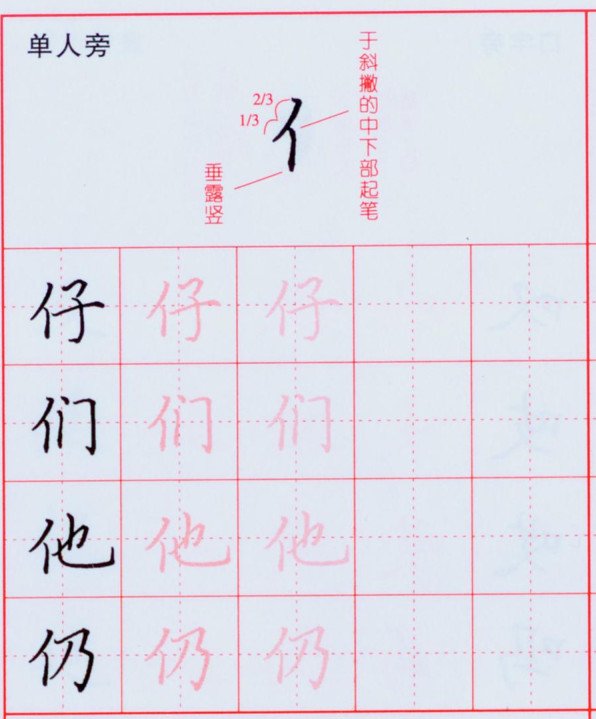 单人旁
于斜撇的中下部起笔
2/3
1/3
亻
垂露竖
仔 仔 仔
们 们 们
他 他 他
仍 仍 仍